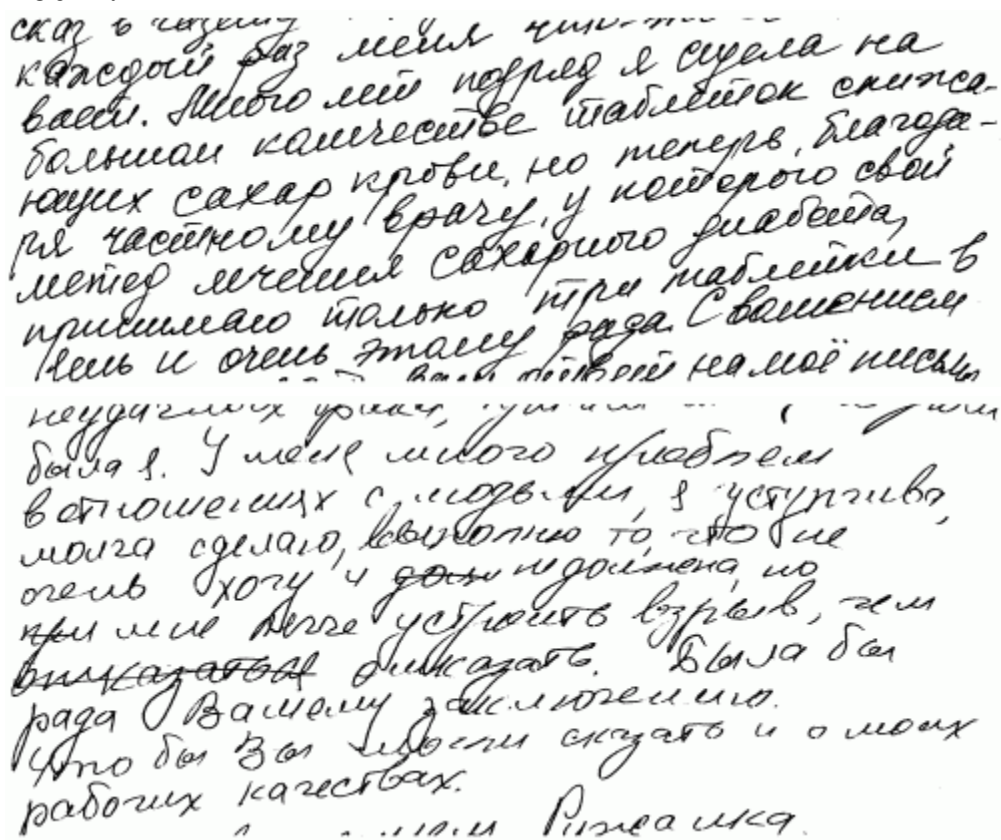 сказ в газету
каждый раз меня
вает. Много лет подряд я сидела на
большом количестве таблеток снижа-
ющих сахар крови, но теперь, благода-
ря частному врачу, у которого свой
метод лечения сахарного диабета,
принимаю только три таблетки в
день и очень этому рада. С уважением
на моё письмо
неудачных
была я. У меня много проблем
в отношениях с людьми, я уступчива,
молча сделаю, выполню то, что не
очень хочу и не должена, но
мне легче устроить взрыв, чем
отказать. Была бы
рада Вашему заключению.
Что бы Вы могли сказать и о моих
рабочих качествах.